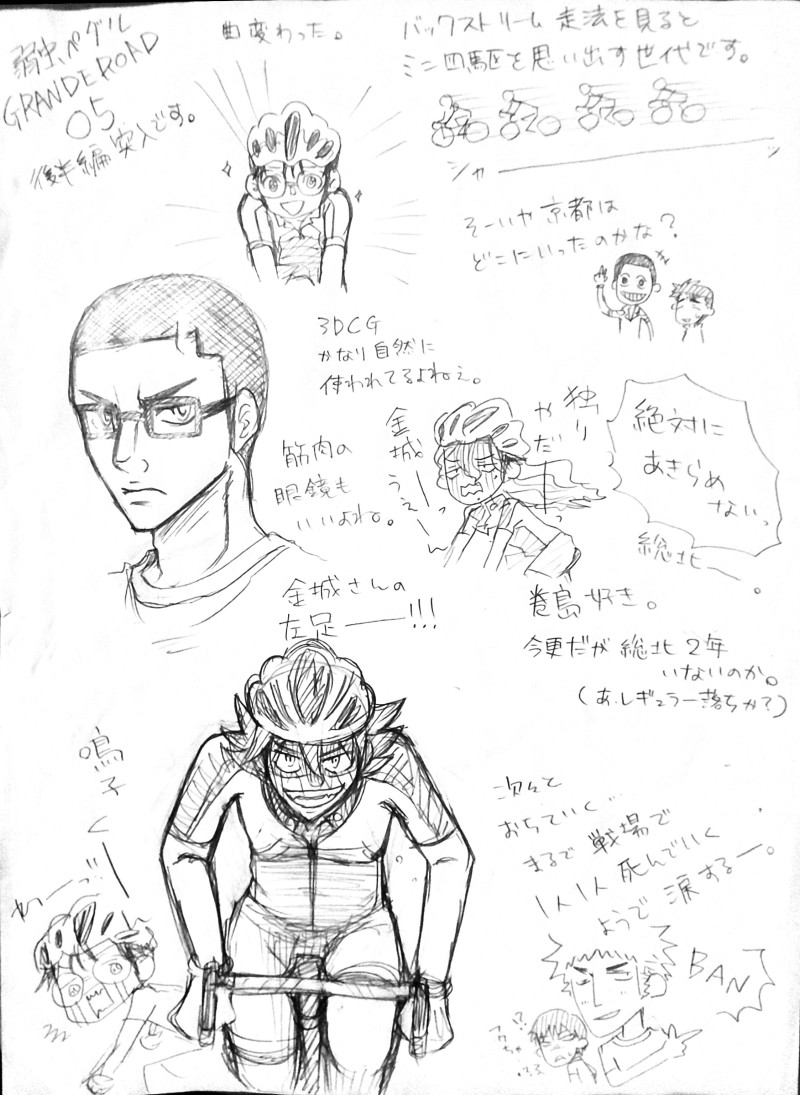 弱虫ペダル
GRANDE ROAD
05
後半編突入です。
曲変わった。
バックストリーム走法を見ると
ミニ四駆を思い出す世代です。
シャーーーッ
そーいや京都は
どこにいったのかな?
3DCG
かなり自然に
使われてるよねぇ。
筋肉の
眼鏡も
いいよね。
金城ーっ
うぇーん
独り
やだーっ
絶対に
あきらめ
ないっ
総北ー。
巻島好き。
今更だが総北2年
いないのか。
(あ、レギュラー落ちか?)
金城さんの
左足ーー!!!
鳴子くーん
わーっ!!
次々と
おちていく…
まるで戦場で
1人1人死んでいく
ようで涙するー。
BAN
!?